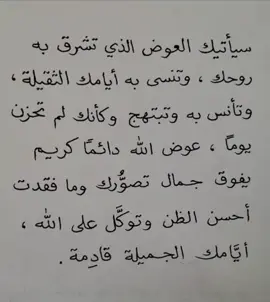 سيأتيك العوض الذي تشرق به
روحك ، وتنسى به أيامك الثقيلة ،
وتأنس به وتبتهج وكأنك لم تحزن
يوماً ، عوض الله دائماً كريم
يفوق جمال تصوُّرك وما فقدت
أحسن الظن وتوكَّل على الله ،
أيَّامك الجميلة قادِمة .